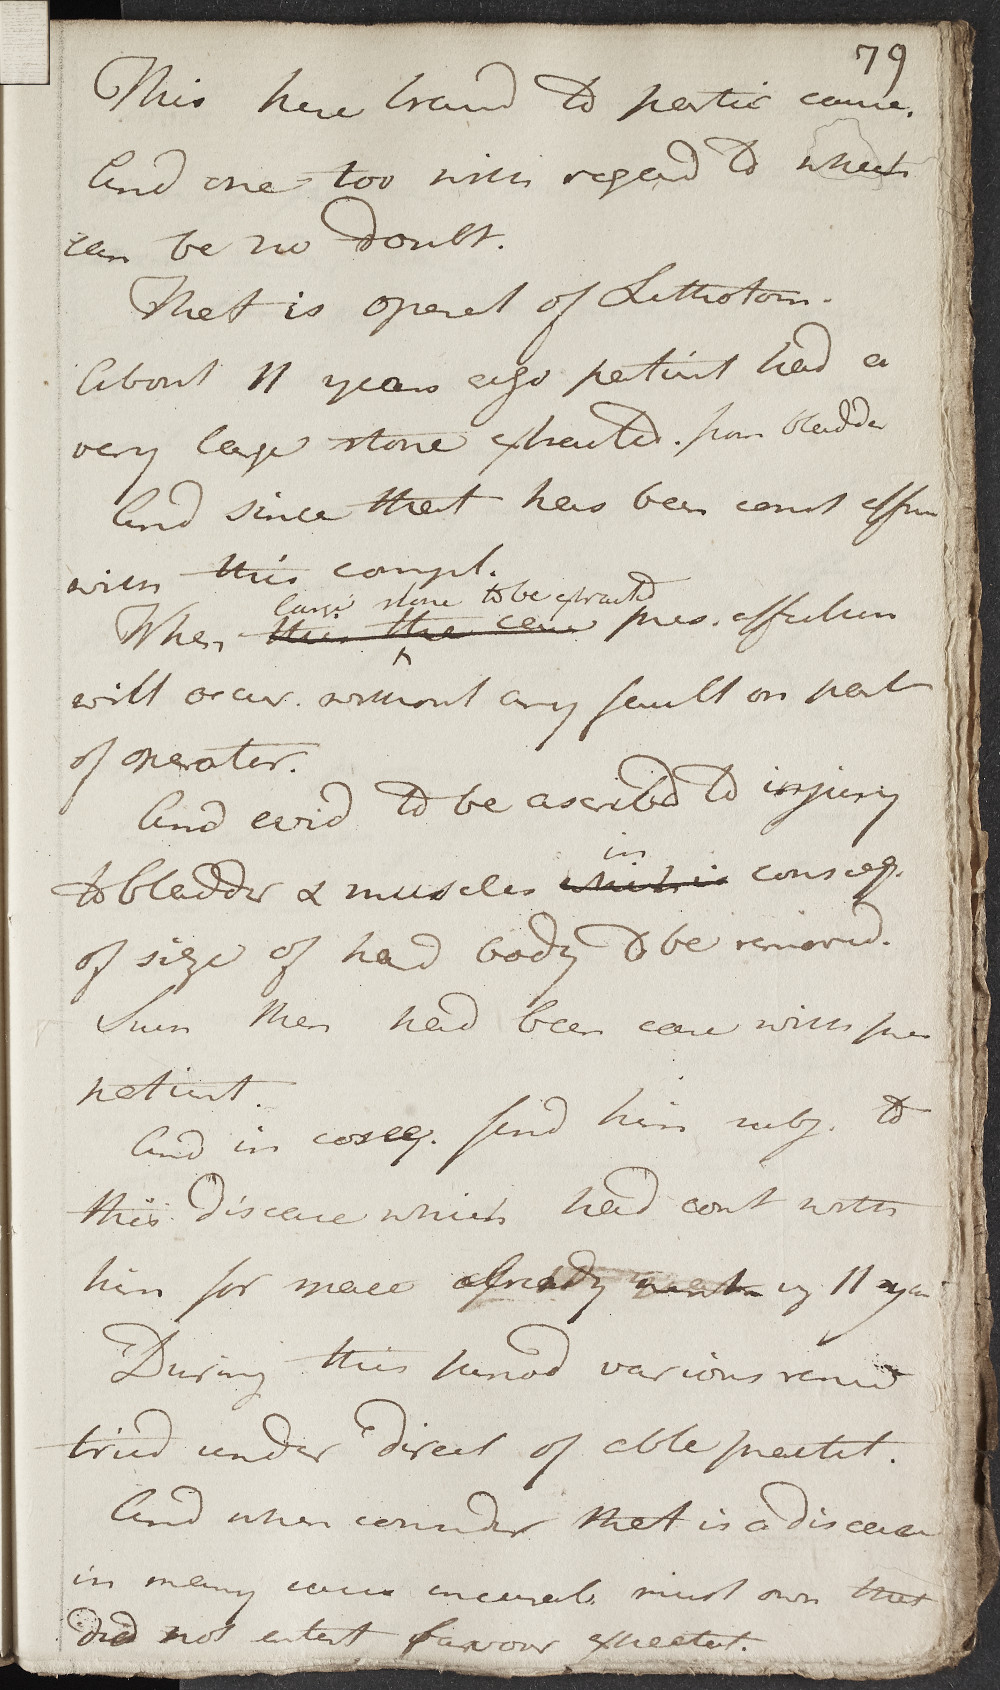 79
This here to partic cause.
And one too with regard to which
can be no doubt.
That is operat of Lithotom.
About 11 years ago patient had a
very large stone extracted. from bladder
And since that has been const
with this compl.
large stone to be extracted
When this the case pres. affection
will occur. without any fault on part
of operator.
And evid to be ascribed to injury
in
to bladder & muscles which is conseq.
of size of hard body to be removed.
Such then had been case with pres
patient.
And in coseq. find him subj. to
this disease which had cont with
him for space already 11 year
During this period various remed
tried under direct of able practit.
And when consider that is a disease
in many cases incurab. must own that
did not entert favour expectat.